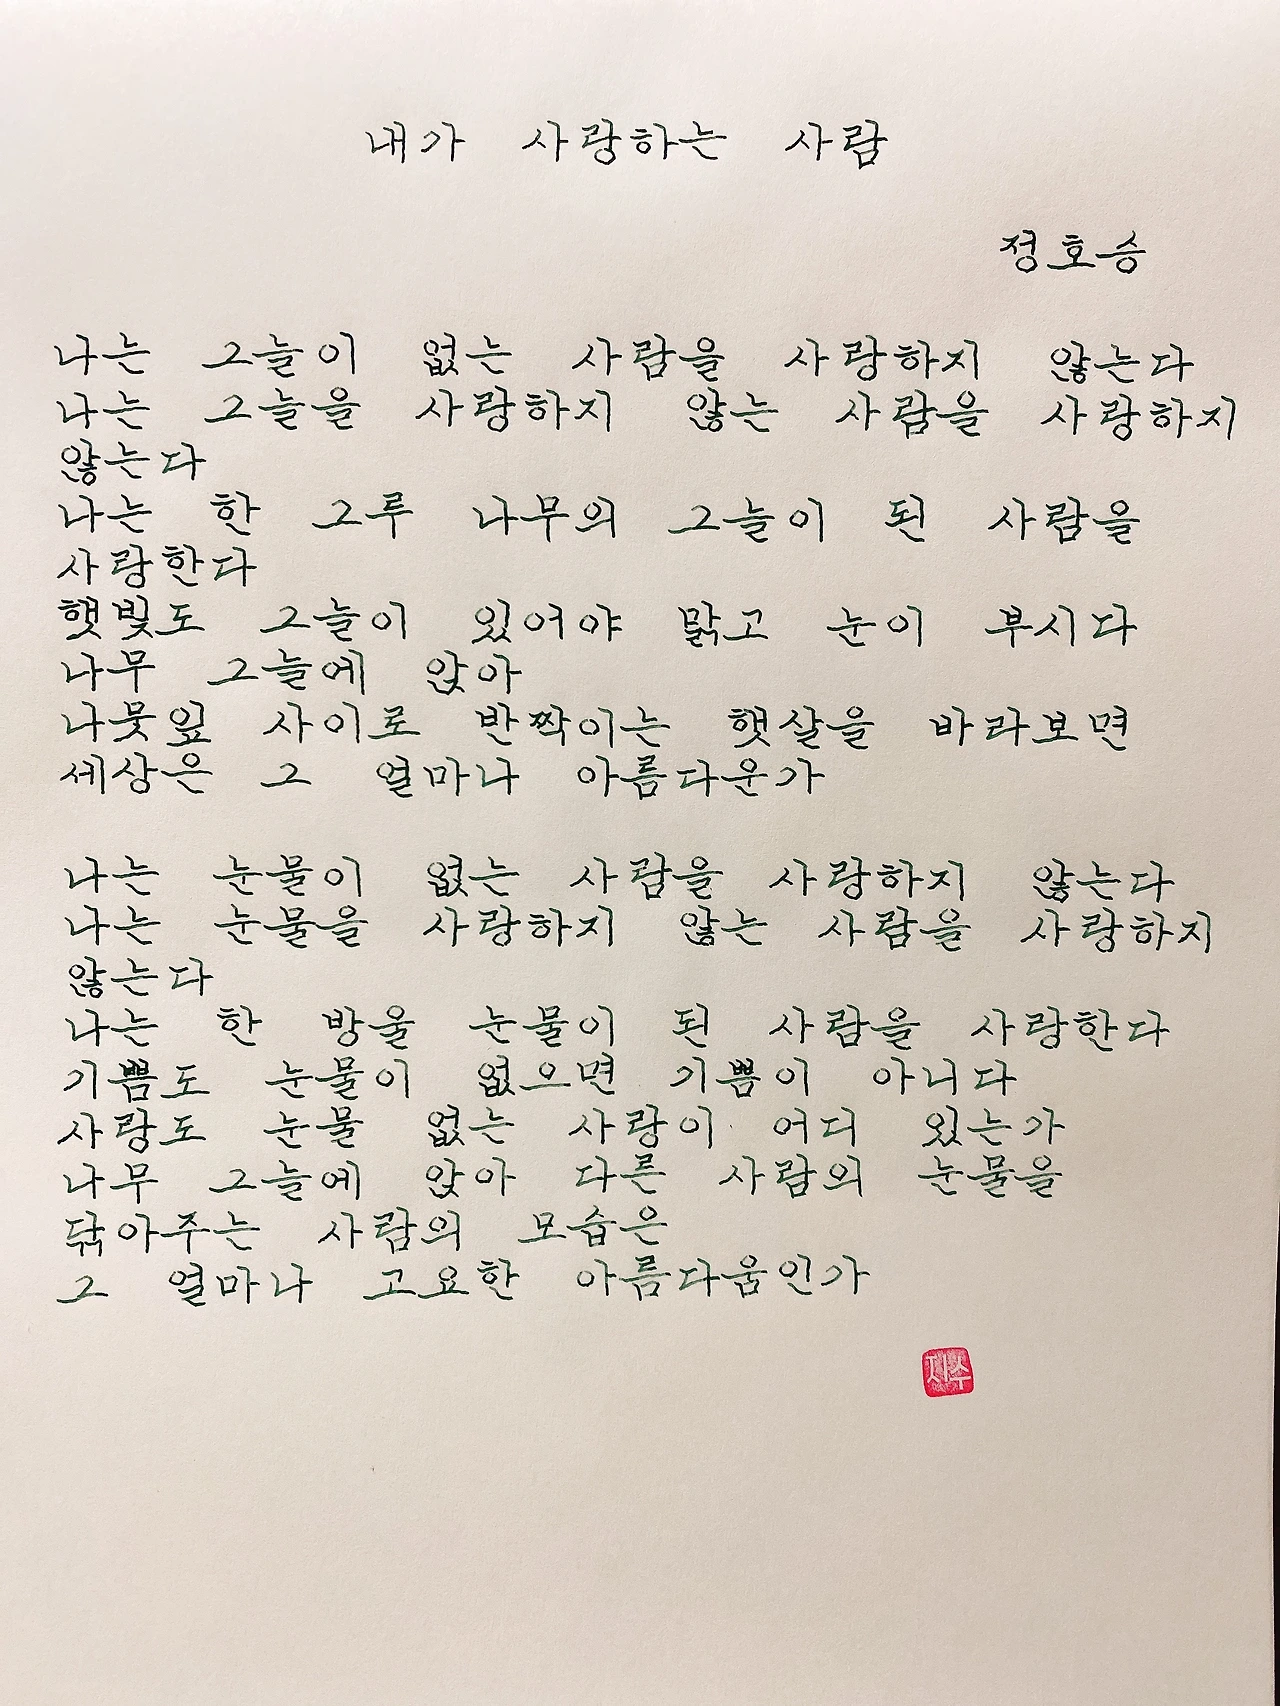 내가 사랑하는 사람
정호승
나는 그늘이 없는 사람을 사랑하지 않는다
나는 그늘을 사랑하지 않는 사람을 사랑하지
않는다
나는 한 그루 나무의 그늘이 된 사람을
사랑한다
햇빛도 그늘이 있어야 맑고 눈이 부시다
나무 그늘에 앉아
나뭇잎 사이로 반짝이는 햇살을 바라보면
세상은 그 얼마나 아름다운가
나는 눈물이 없는 사람을 사랑하지 않는다
나는 눈물을 사랑하지 않는 사람을 사랑하지
않는다
나는 한 방울 눈물이 된 사람을 사랑한다
기쁨도 눈물이 없으면 기쁨이 아니다
사랑도 눈물 없는 사랑이 어디 있는가
나무 그늘에 앉아 다른 사람의 눈물을
닦아주는 사람의 모습은
그 얼마나 고요한 아름다움인가
지수